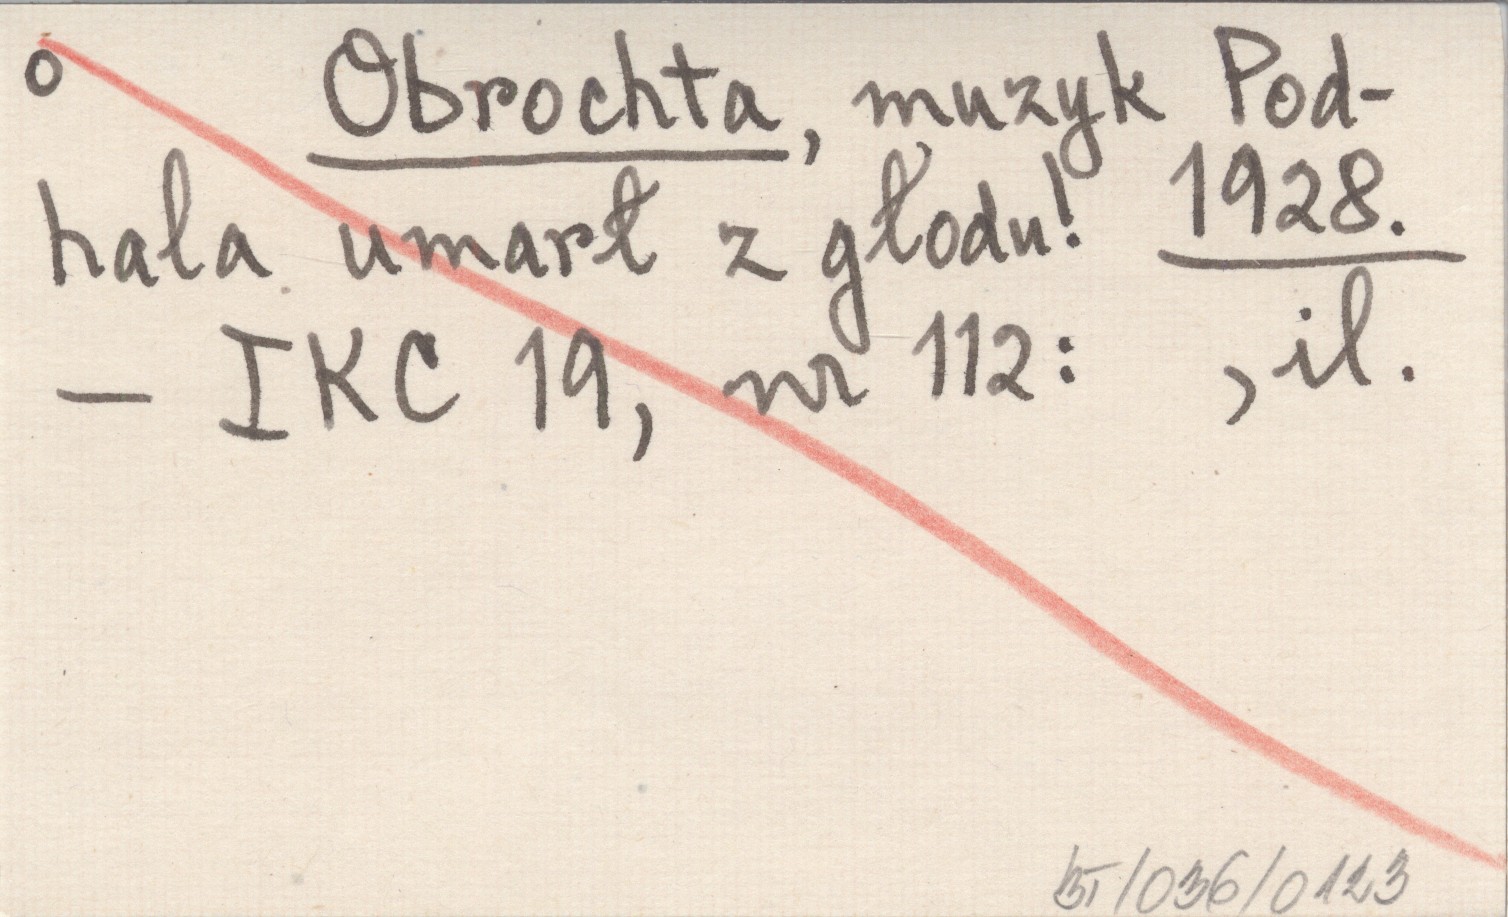 o Obrochta, muzyk Pod-
hala umarł z głodu! 1928.
— IKC 19, nr 112: , il.
BT/036/0123